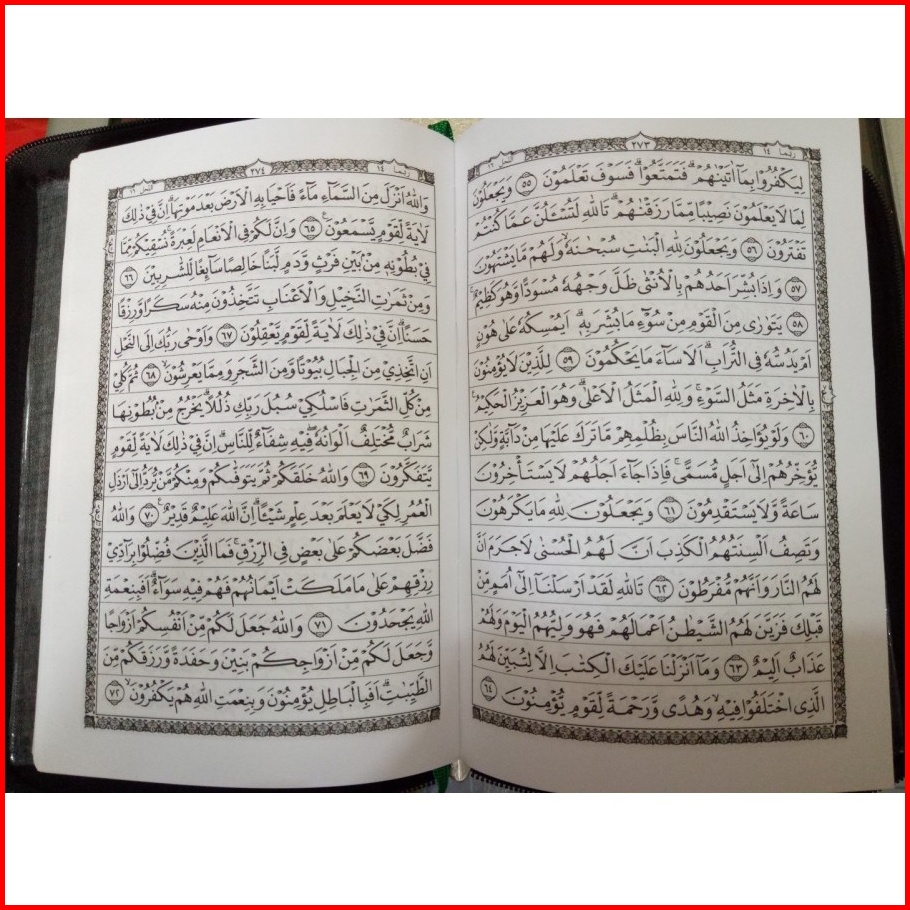 ربما ١٤ ٢٧٣ النحل ١٦
لِيَكْفُرُوْا بِمَآ اٰتَيْنٰهُمْ ۗ فَتَمَتَّعُوْا ۗ فَسَوْفَ تَعْلَمُوْنَ ٥٥ وَيَجْعَلُوْنَ
لِمَا لَا يَعْلَمُوْنَ نَصِيْبًا مِّمَّا رَزَقْنٰهُمْ ۗ تَاللّٰهِ لَتُسْـَٔلُنَّ عَمَّا كُنْتُمْ
تَفْتَرُوْنَ ٥٦ وَيَجْعَلُوْنَ لِلّٰهِ الْبَنٰتِ سُبْحٰنَهٗ ۙ وَلَهُمْ مَّا يَشْتَهُوْنَ
٥٧ وَاِذَا بُشِّرَ اَحَدُهُمْ بِالْاُنْثٰى ظَلَّ وَجْهُهٗ مُسْوَدًّا وَّهُوَ كَظِيْمٌ ۚ
٥٨ يَتَوَارٰى مِنَ الْقَوْمِ مِنْ سُوْۤءِ مَا بُشِّرَ بِهٖ ۗ اَيُمْسِكُهٗ عَلٰى هُوْنٍ
اَمْ يَدُسُّهٗ فِى التُّرَابِ ۗ اَلَا سَاۤءَ مَا يَحْكُمُوْنَ ٥٩ لِلَّذِيْنَ لَا يُؤْمِنُوْنَ
بِالْاٰخِرَةِ مَثَلُ السَّوْءِ ۚ وَلِلّٰهِ الْمَثَلُ الْاَعْلٰى ۗ وَهُوَ الْعَزِيْزُ الْحَكِيْمُ ࣖ
٦٠ وَلَوْ يُؤَاخِذُ اللّٰهُ النَّاسَ بِظُلْمِهِمْ مَّا تَرَكَ عَلَيْهَا مِنْ دَاۤبَّةٍ وَّلٰكِنْ
يُّؤَخِّرُهُمْ اِلٰٓى اَجَلٍ مُّسَمًّى ۚ فَاِذَا جَاۤءَ اَجَلُهُمْ لَا يَسْتَأْخِرُوْنَ
سَاعَةً وَّلَا يَسْتَقْدِمُوْنَ ٦١ وَيَجْعَلُوْنَ لِلّٰهِ مَا يَكْرَهُوْنَ
وَتَصِفُ اَلْسِنَتُهُمُ الْكَذِبَ اَنَّ لَهُمُ الْحُسْنٰى لَا جَرَمَ اَنَّ
لَهُمُ النَّارَ وَاَنَّهُمْ مُّفْرَطُوْنَ ٦٢ تَاللّٰهِ لَقَدْ اَرْسَلْنَآ اِلٰٓى اُمَمٍ مِّنْ
قَبْلِكَ فَزَيَّنَ لَهُمُ الشَّيْطٰنُ اَعْمَالَهُمْ فَهُوَ وَلِيُّهُمُ الْيَوْمَ وَلَهُمْ
عَذَابٌ اَلِيْمٌ ٦٣ وَمَآ اَنْزَلْنَا عَلَيْكَ الْكِتٰبَ اِلَّا لِتُبَيِّنَ لَهُمُ
الَّذِى اخْتَلَفُوْا فِيْهِ ۙ وَهُدًى وَّرَحْمَةً لِّقَوْمٍ يُّؤْمِنُوْنَ ٦٤
ربما ١٤ ٢٧٤ النحل ١٦
وَاللّٰهُ اَنْزَلَ مِنَ السَّمَاۤءِ مَاۤءً فَاَحْيَا بِهِ الْاَرْضَ بَعْدَ مَوْتِهَا ۗ اِنَّ فِيْ ذٰلِكَ
لَاٰيَةً لِّقَوْمٍ يَّسْمَعُوْنَ ࣖ ٦٥ وَاِنَّ لَكُمْ فِى الْاَنْعَامِ لَعِبْرَةً ۚ نُسْقِيْكُمْ مِّمَّا
فِيْ بُطُوْنِهٖ مِنْۢ بَيْنِ فَرْثٍ وَّدَمٍ لَّبَنًا خَالِصًا سَاۤىِٕغًا لِّلشّٰرِبِيْنَ ٦٦
وَمِنْ ثَمَرٰتِ النَّخِيْلِ وَالْاَعْنَابِ تَتَّخِذُوْنَ مِنْهُ سَكَرًا وَّرِزْقًا
حَسَنًا ۗ اِنَّ فِيْ ذٰلِكَ لَاٰيَةً لِّقَوْمٍ يَّعْقِلُوْنَ ٦٧ وَاَوْحٰى رَبُّكَ اِلَى النَّحْلِ
اَنِ اتَّخِذِيْ مِنَ الْجِبَالِ بُيُوْتًا وَّمِنَ الشَّجَرِ وَمِمَّا يَعْرِشُوْنَ ۙ ٦٨ ثُمَّ كُلِيْ
مِنْ كُلِّ الثَّمَرٰتِ فَاسْلُكِيْ سُبُلَ رَبِّكِ ذُلُلًا ۗ يَخْرُجُ مِنْۢ بُطُوْنِهَا
شَرَابٌ مُّخْتَلِفٌ اَلْوَانُهٗ ۖ فِيْهِ شِفَاۤءٌ لِّلنَّاسِ ۗ اِنَّ فِيْ ذٰلِكَ لَاٰيَةً لِّقَوْمٍ
يَّتَفَكَّرُوْنَ ٦٩ وَاللّٰهُ خَلَقَكُمْ ثُمَّ يَتَوَفّٰىكُمْ وَمِنْكُمْ مَّنْ يُّرَدُّ اِلٰٓى اَرْذَلِ
الْعُمُرِ لِكَيْ لَا يَعْلَمَ بَعْدَ عِلْمٍ شَيْـًٔا ۗ اِنَّ اللّٰهَ عَلِيْمٌ قَدِيْرٌ ࣖ ٧٠ وَاللّٰهُ
فَضَّلَ بَعْضَكُمْ عَلٰى بَعْضٍ فِى الرِّزْقِ ۚ فَمَا الَّذِيْنَ فُضِّلُوْا بِرَاۤدِّيْ
رِزْقِهِمْ عَلٰى مَا مَلَكَتْ اَيْمَانُهُمْ فَهُمْ فِيْهِ سَوَاۤءٌ ۗ اَفَبِنِعْمَةِ
اللّٰهِ يَجْحَدُوْنَ ٧١ وَاللّٰهُ جَعَلَ لَكُمْ مِّنْ اَنْفُسِكُمْ اَزْوَاجًا
وَّجَعَلَ لَكُمْ مِّنْ اَزْوَاجِكُمْ بَنِيْنَ وَحَفَدَةً وَّرَزَقَكُمْ مِّنَ
الطَّيِّبٰتِ ۗ اَفَبِالْبَاطِلِ يُؤْمِنُوْنَ وَبِنِعْمَتِ اللّٰهِ هُمْ يَكْفُرُوْنَ ۙ ٧٢